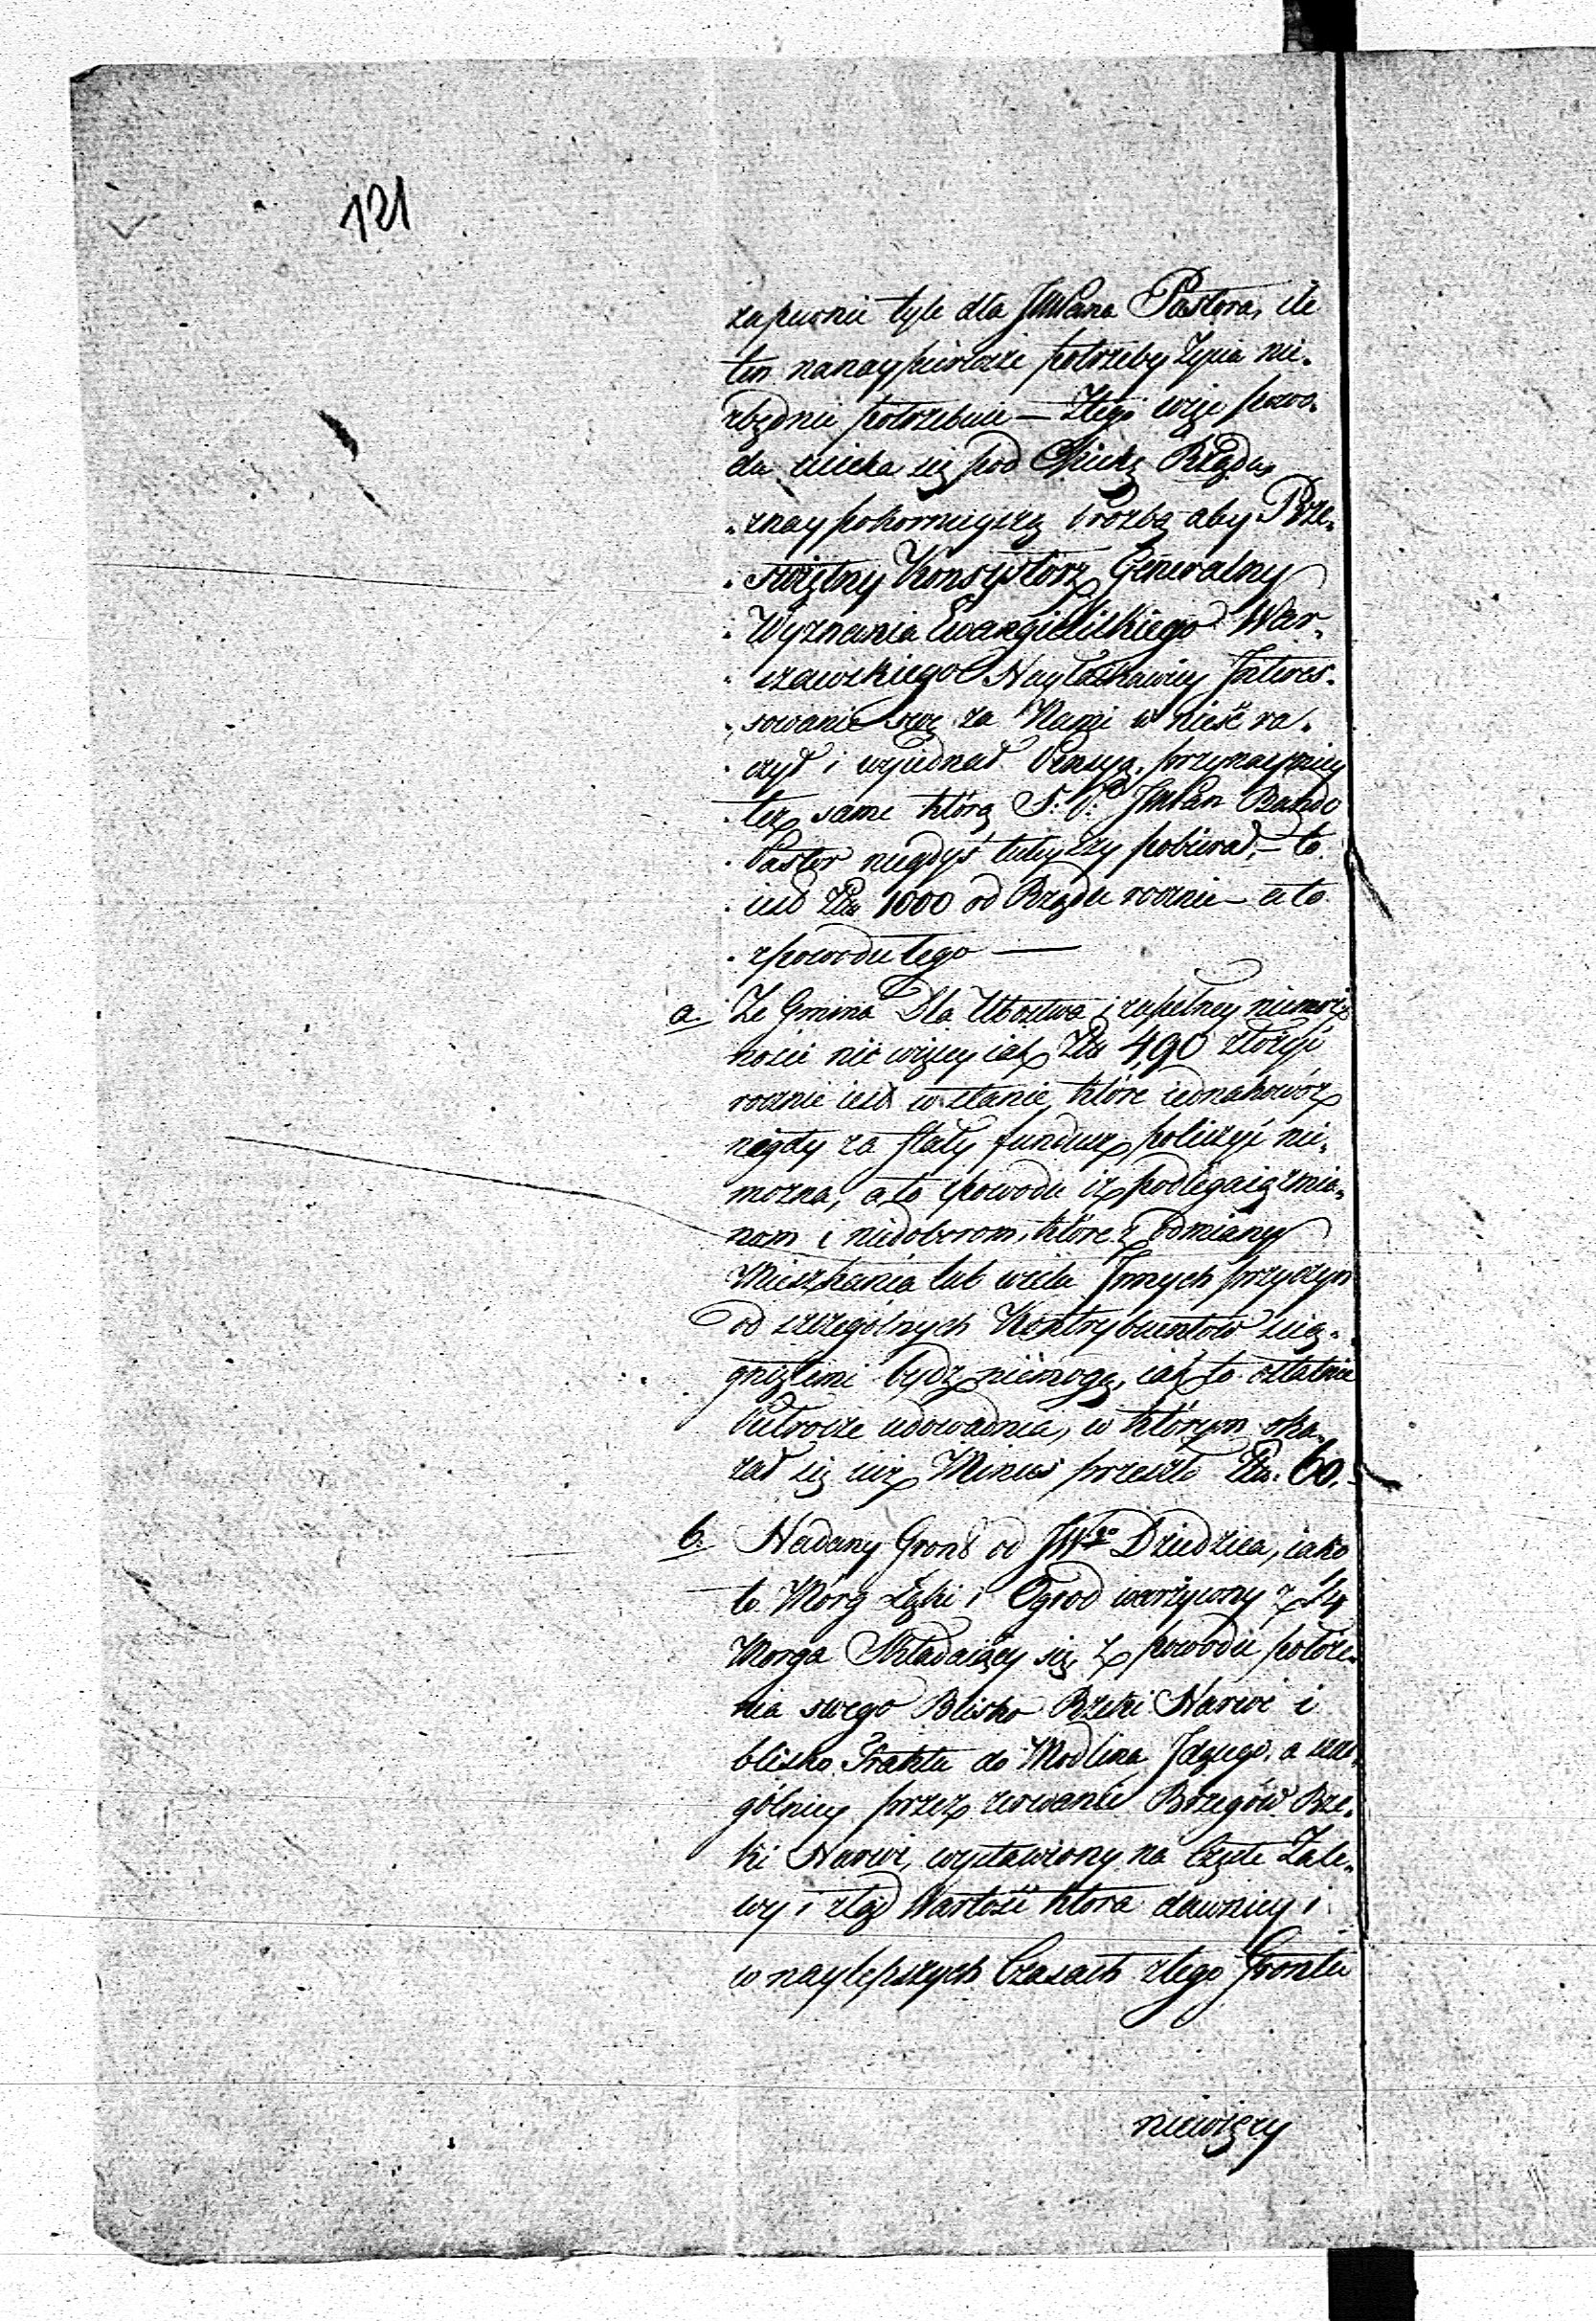 121
zapewnić tyle dla JMPana Pastora, ile
ten nanaypierwsze potrzeby życia nie-
zbędnie potrzebuie — Ztego więc powo-
du ucieka się pod Opiekę Rządu,
znaypokornieyszą Prozbą aby Prze-
świętny Konsystorz Generalny
Wyznania Ewangielickiego War-
szawskiego Nayłaskawiey Interes-
sowanie swe za Nami wnieść ra-
czył i wyiednał Pensyą, przynaymniey
tez same którą S. P. JMPan Bando
Pastor niegdyś tuteyszy pobierał, — to
iest Złu 1000 od Rządu rocznie — a to
zpowodu tego —
a. Ze Gmina Dla Ubostwa i zupełney niemoż-
ności nic więcey iak Złu 490 złożyć
rocznie iest wstanie, które iednakowóż
nigdy za stały fundusz policzyć nie-
mozna, a to zpowodu iż podlegaią zmia-
nom i niedoborom, które z odmiany
Mieszkania lub wielu Innych przyczyn
od szczególnych Kontrybuentów ścią-
gniętemi bydz niemogą, iak to ostatnie
Pułrocze udowadnia, w którym oka-
zał się iuż Minus przeszło Złu. 60.
b. Nadany Gront od JWgo Dziedzica, iako
to Morg Łąki i Ogrod warzywny z 1/4
Morga Składaiący się z powodu położe-
nia swego Blisko Rzeki Narwi i
blisko Traktu do Modlina Idącego, a szcze-
gólniey przez zerwanie Brzegów Rze-
ki Narwi, wystawiony na Częste Zale-
wy i ztąd Wartość ktora dawniey i
w naylepszych Czasach ztego Grontu
niewięcy